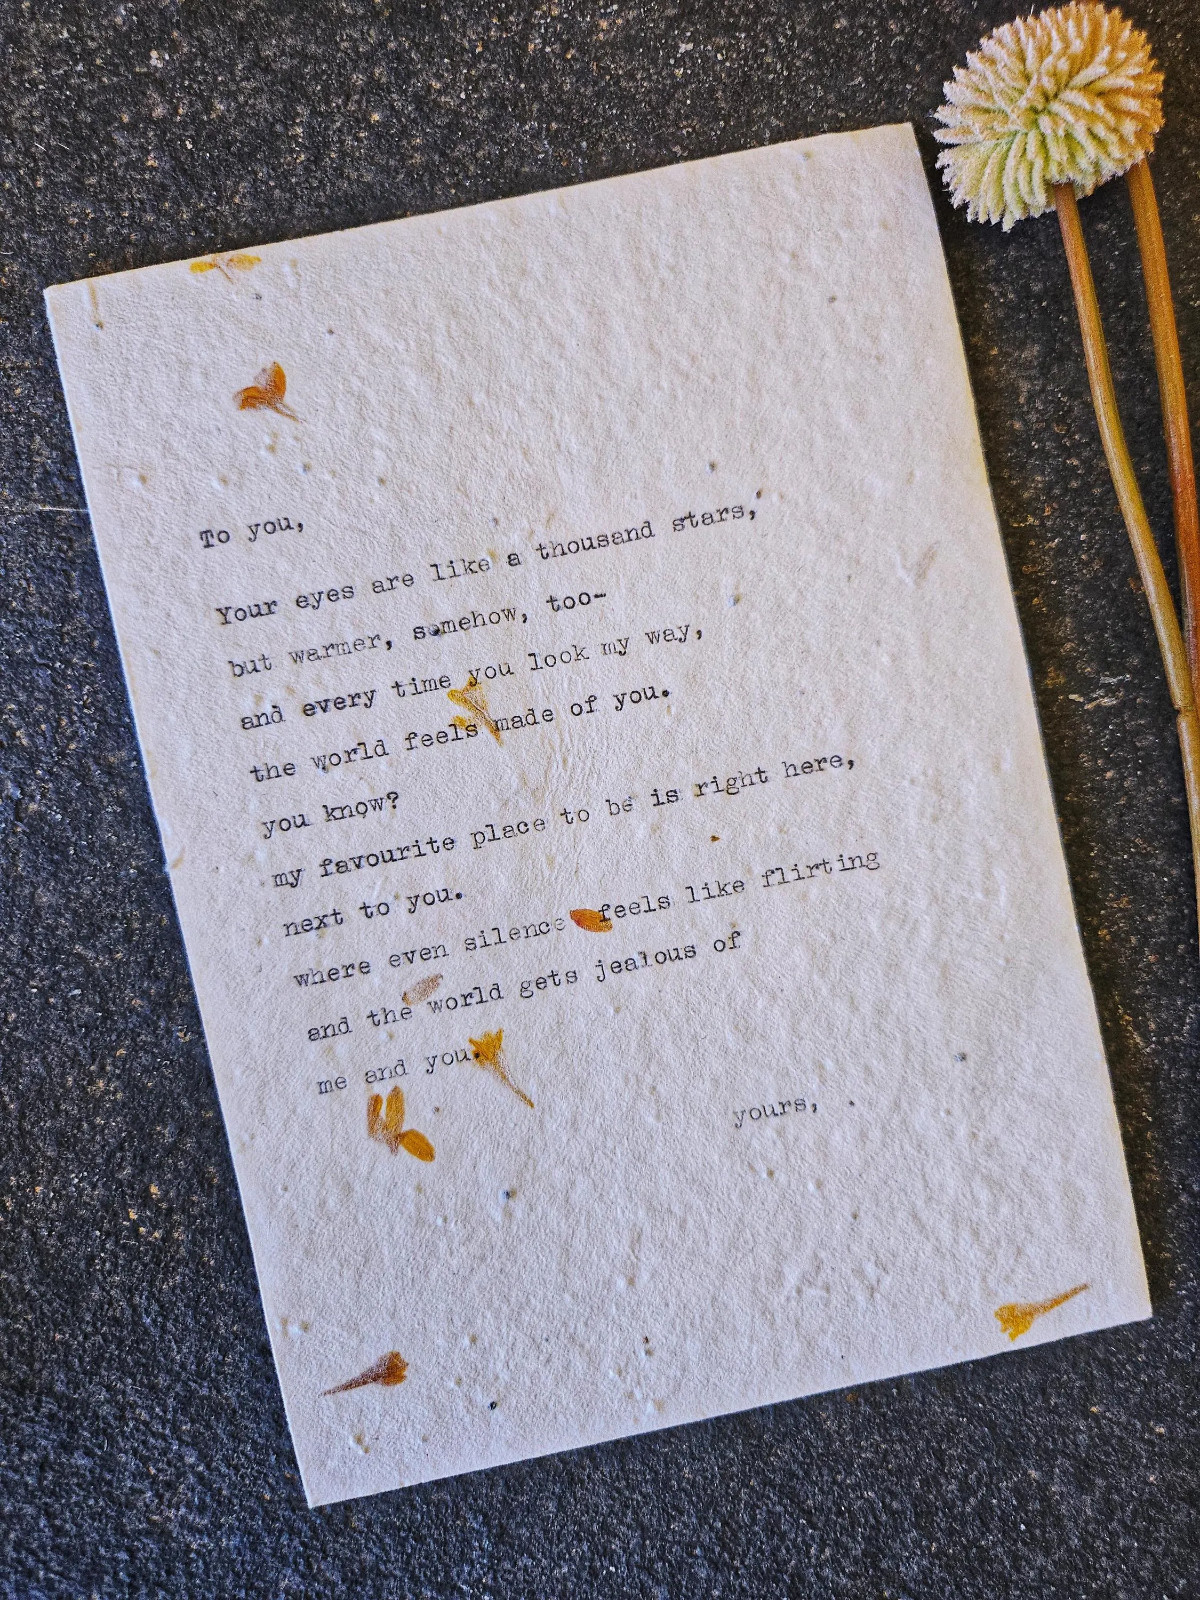 To you,
Your eyes are like a thousand stars,
but warmer, somehow, too-
and every time you look my way,
the world feels made of you.
you know?
my favourite place to be is right here,
next to you.
where even silence feels like flirting
and the world gets jealous of
me and you.
yours, .